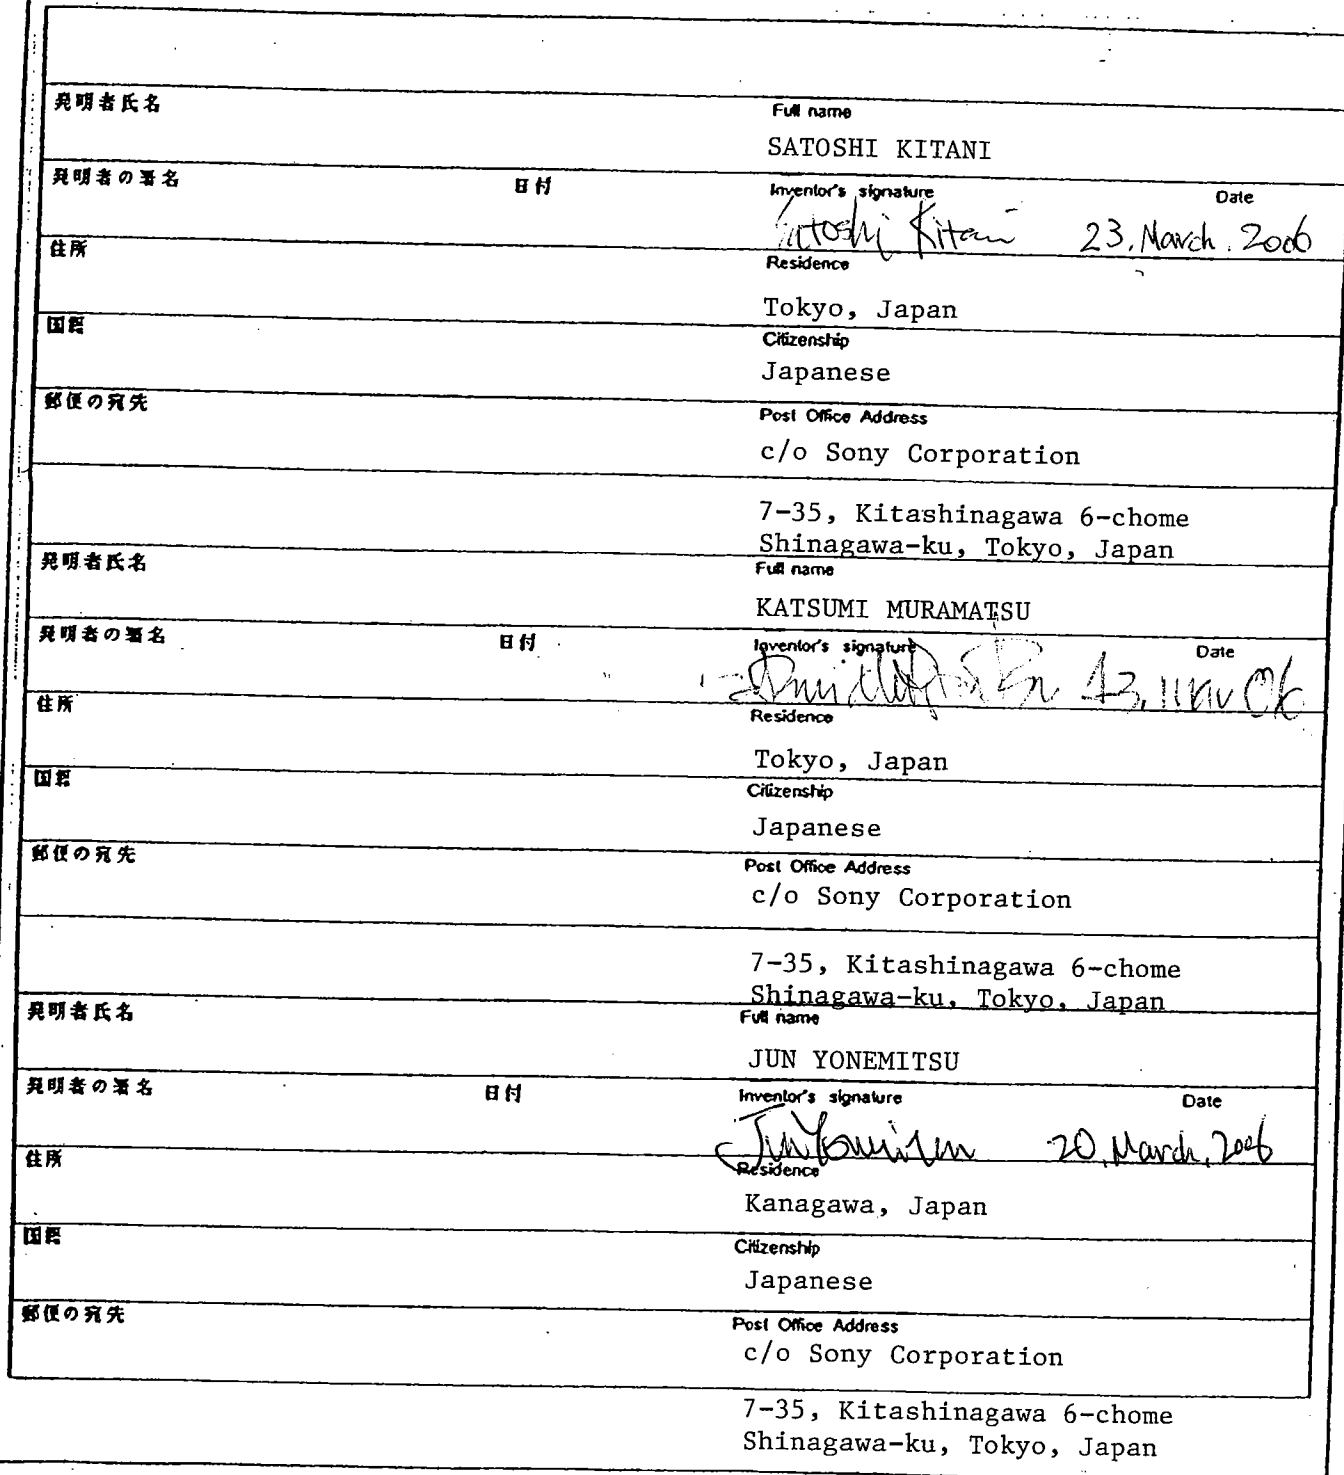 発明者氏名 Full name
SATOSHI KITANI
発明者の署名 日付 Inventor's signature Date
Satoshi Kitani 23. March. 2006
住所 Residence
Tokyo, Japan
国籍 Citizenship
Japanese
郵便の宛先 Post Office Address
c/o Sony Corporation
7-35, Kitashinagawa 6-chome
Shinagawa-ku, Tokyo, Japan
発明者氏名 Full name
KATSUMI MURAMATSU
発明者の署名 日付 Inventor's signature Date
住所 Residence
Tokyo, Japan
国籍 Citizenship
Japanese
郵便の宛先 Post Office Address
c/o Sony Corporation
7-35, Kitashinagawa 6-chome
Shinagawa-ku, Tokyo, Japan
発明者氏名 Full name
JUN YONEMITSU
発明者の署名 日付 Inventor's signature Date
20, March, 2006
住所 Residence
Kanagawa, Japan
国籍 Citizenship
Japanese
郵便の宛先 Post Office Address
c/o Sony Corporation
7-35, Kitashinagawa 6-chome
Shinagawa-ku, Tokyo, Japan